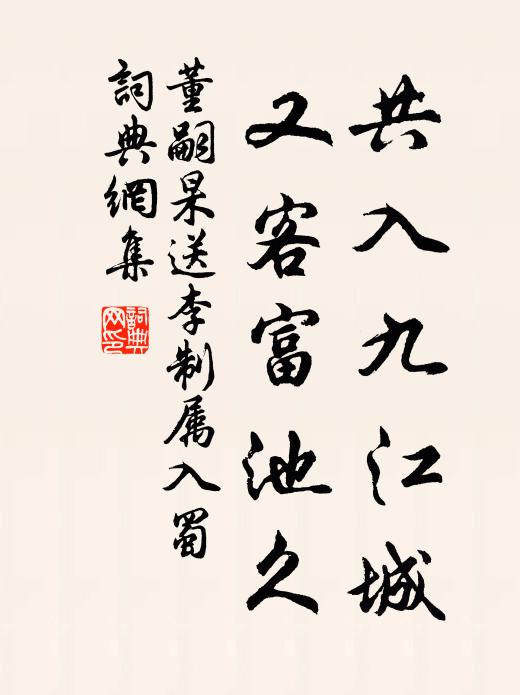 共入九江城
又客富池久
董嗣杲送李制属入蜀
詞典網集
詞典网印